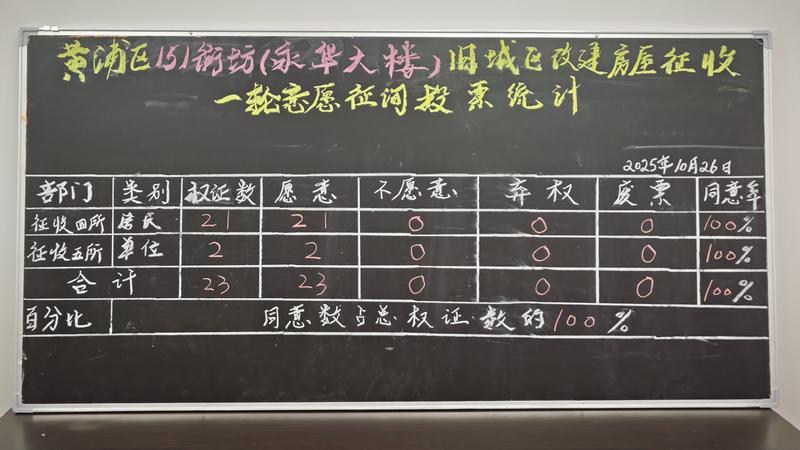 黄浦区151街坊(永华大楼)旧城区改建房屋征收
一轮意愿征询投票统计
2025年10月26日
部门 类别 权证数 愿意 不愿意 弃权 废票 同意率
征收四所 居民 21 21 0 0 0 100%
征收五所 单位 2 2 0 0 0 100%
合计 23 23 0 0 0 100%
百分比 同意数占总权证数的100%